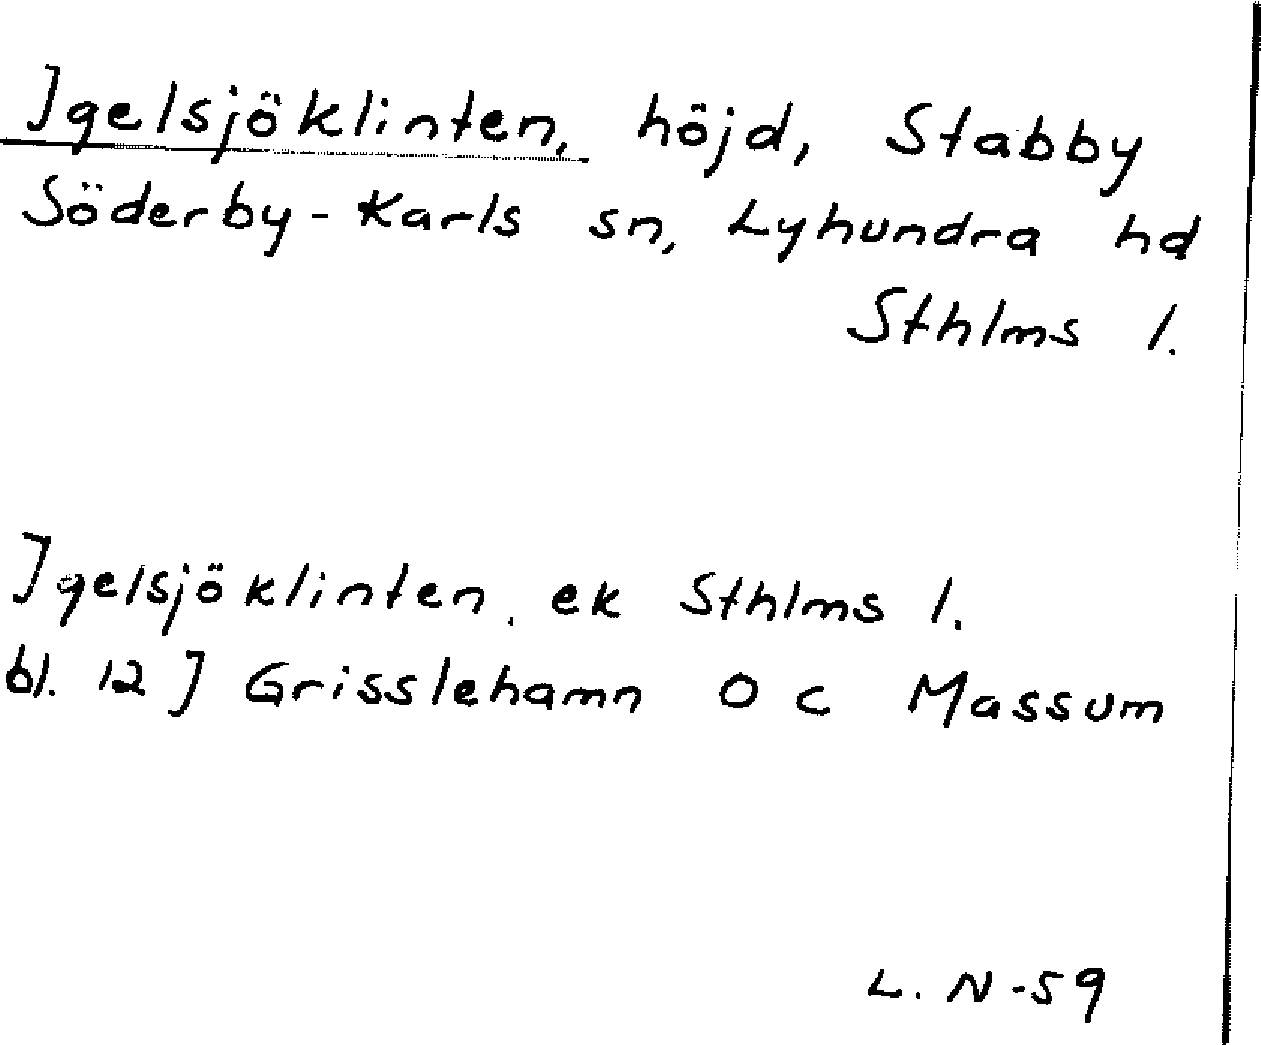 Igelsjöklinten, höjd, Stabby
Söderby-Karls sn, Lyhundra hd
Sthlms l.
Igelsjöklinten. ek Sthlms l.
bl. 12 J Grisslehamn O C Massum
L. N -59